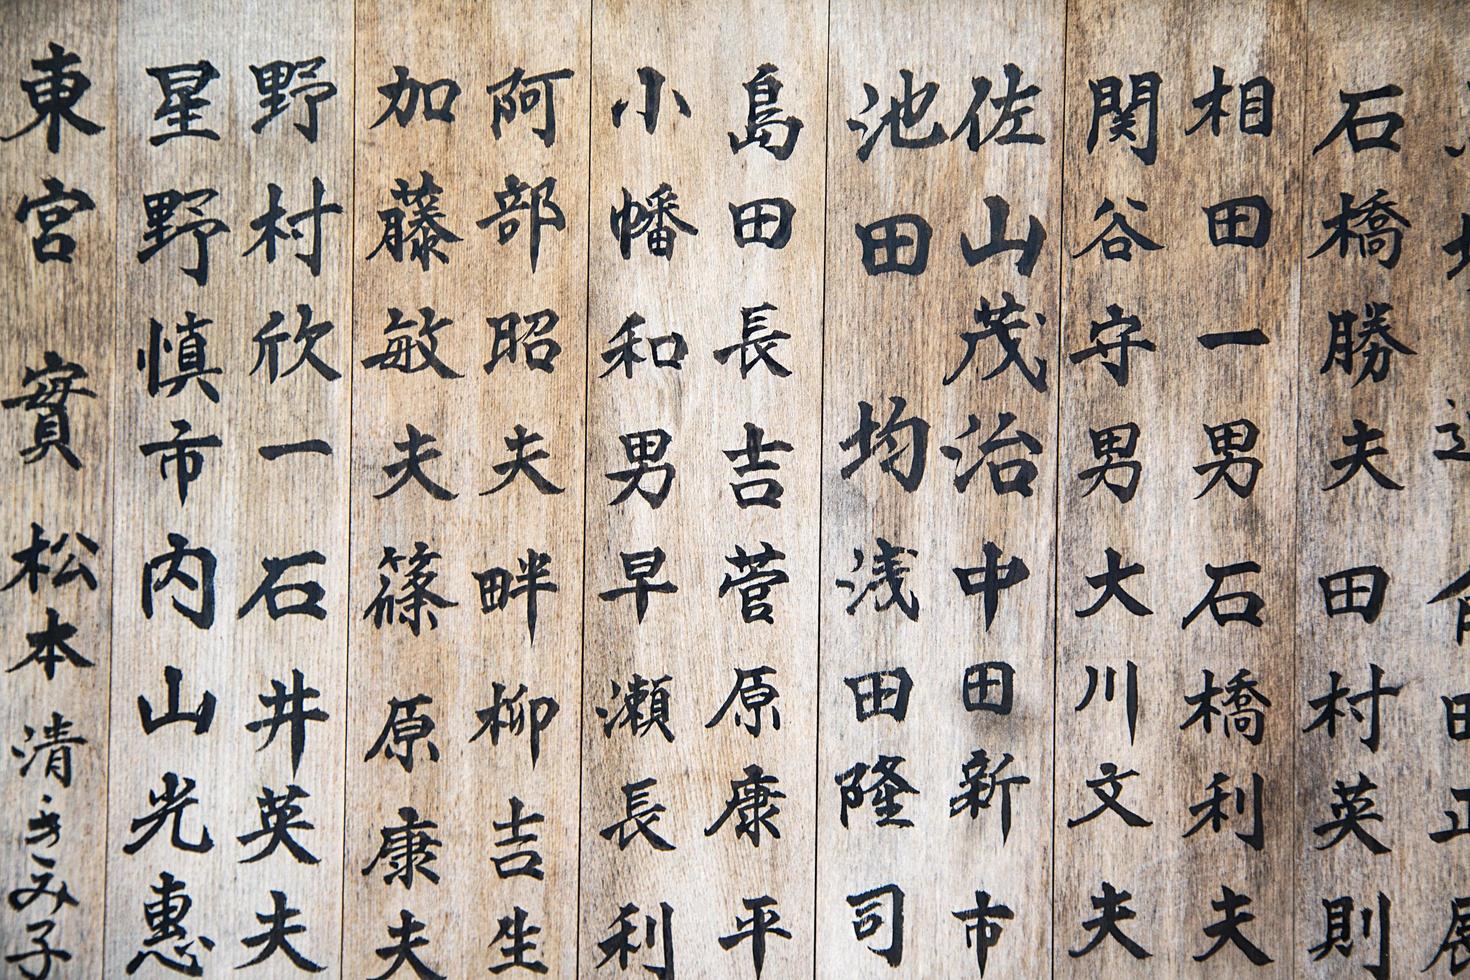 石橋勝夫 田村英則
相田一男 石橋利夫
関谷守男 大川文夫
佐山茂治 中田新市
池田 均 浅田隆司
島田長吉 菅原康平
小幡和男 早瀬長利
阿部昭夫 畔柳吉生
加藤敏夫 篠原康夫
野村欣一 石井英夫
星野慎市 内山光惠
東宮 實 松本清きみ子